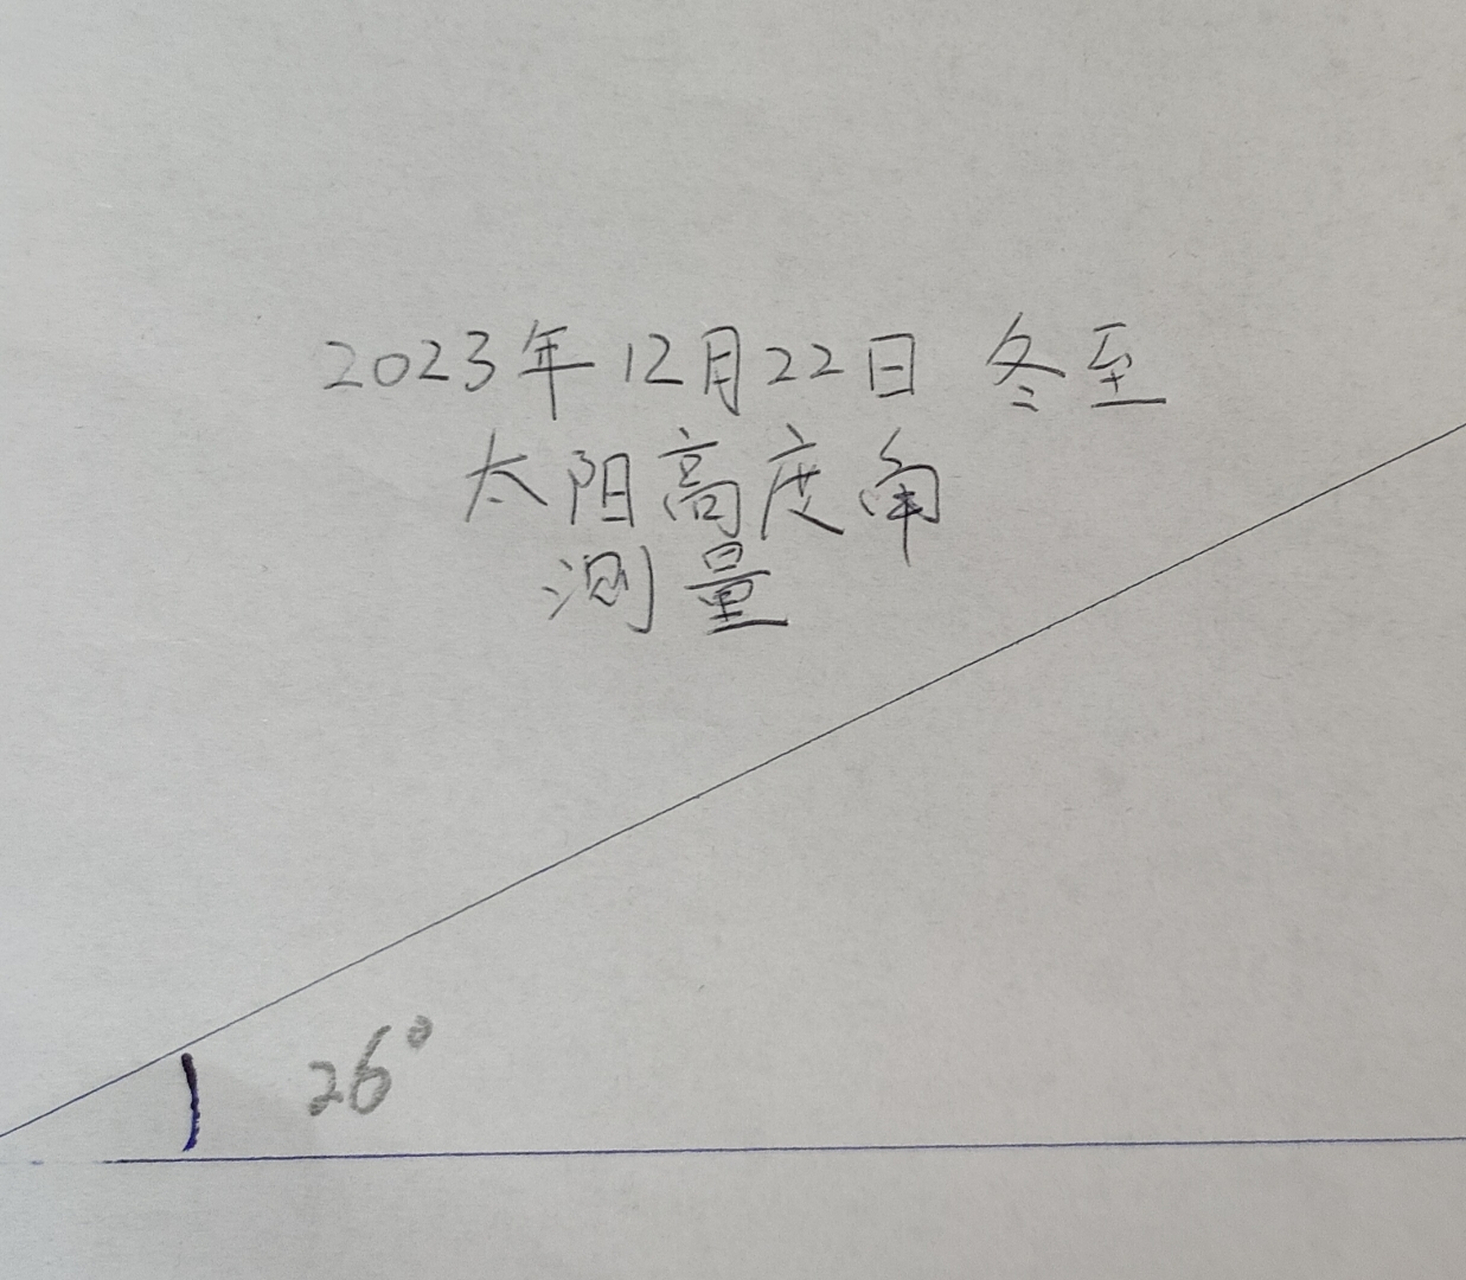 2023年12月22日 冬至
太阳高度角
测量
26°